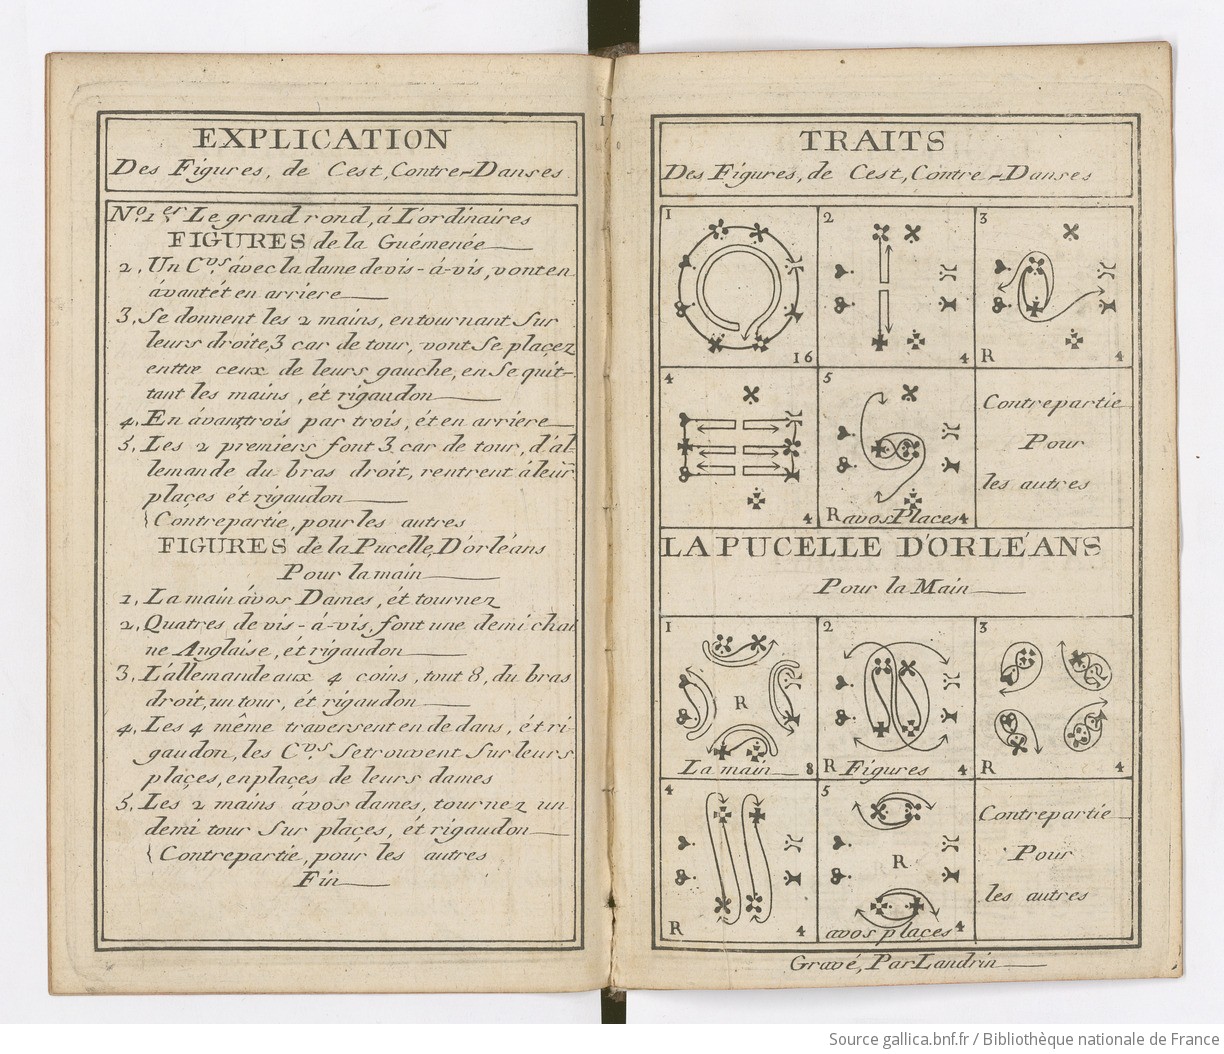 EXPLICATION
Des Figures, de Cest, Contre-Danses
No. 1er Le grand rond, á L'ordinaires
FIGURES de la Guémenée
2, Un Cvs. ávec la dame de vis-á-vis, vont en
ávant ét en arriere
3, Se donnent les 2 mains, en tournant Sur
leurs droite, 3 car de tour, vont Se plaçez
entre ceux de leurs gauche, en Se quit-
tant les mains, ét rigaudon
4, En ávant trois par trois, ét en arriere
5, Les 2 premiers font 3 car de tour, d'al-
lemande du bras droit, rentrent á leur
plaçes ét rigaudon
Contrepartie, pour les autres
FIGURES de la Pucelle, D'orléans
Pour la main
1, La main ávos Dames, ét tournez
2, Quatres de vis-á-vis, font une demi chai
ne Anglaise, ét rigaudon
3, L'állemande aux 4 coins, tout 8, du bras
droit, un tour, ét rigaudon
4, Les 4 même traversent en de dans, ét ri-
gaudon, les Cvs. Se trouvent Sur leurs
plaçes, en plaçes de leurs dames
5, Les 2 mains ávos dames, tournez un
demi tour Sur plaçes, ét rigaudon
Contrepartie, pour les autres
Fin
TRAITS
Des Figures, de Cest, Contre-Danses
1
16
2
4
3
R
4
4
4
5
R avos Places 4
Contrepartie
Pour
les autres
LA PUCELLE D'ORLÉANS
Pour la Main
1
R
La main 8
2
R Figures 4
3
R
4
4
R
4
5
R
avos plaçes 4
Contrepartie
Pour
les autres
Gravé, Par Landrin
Source gallica.bnf.fr / Bibliothèque nationale de France